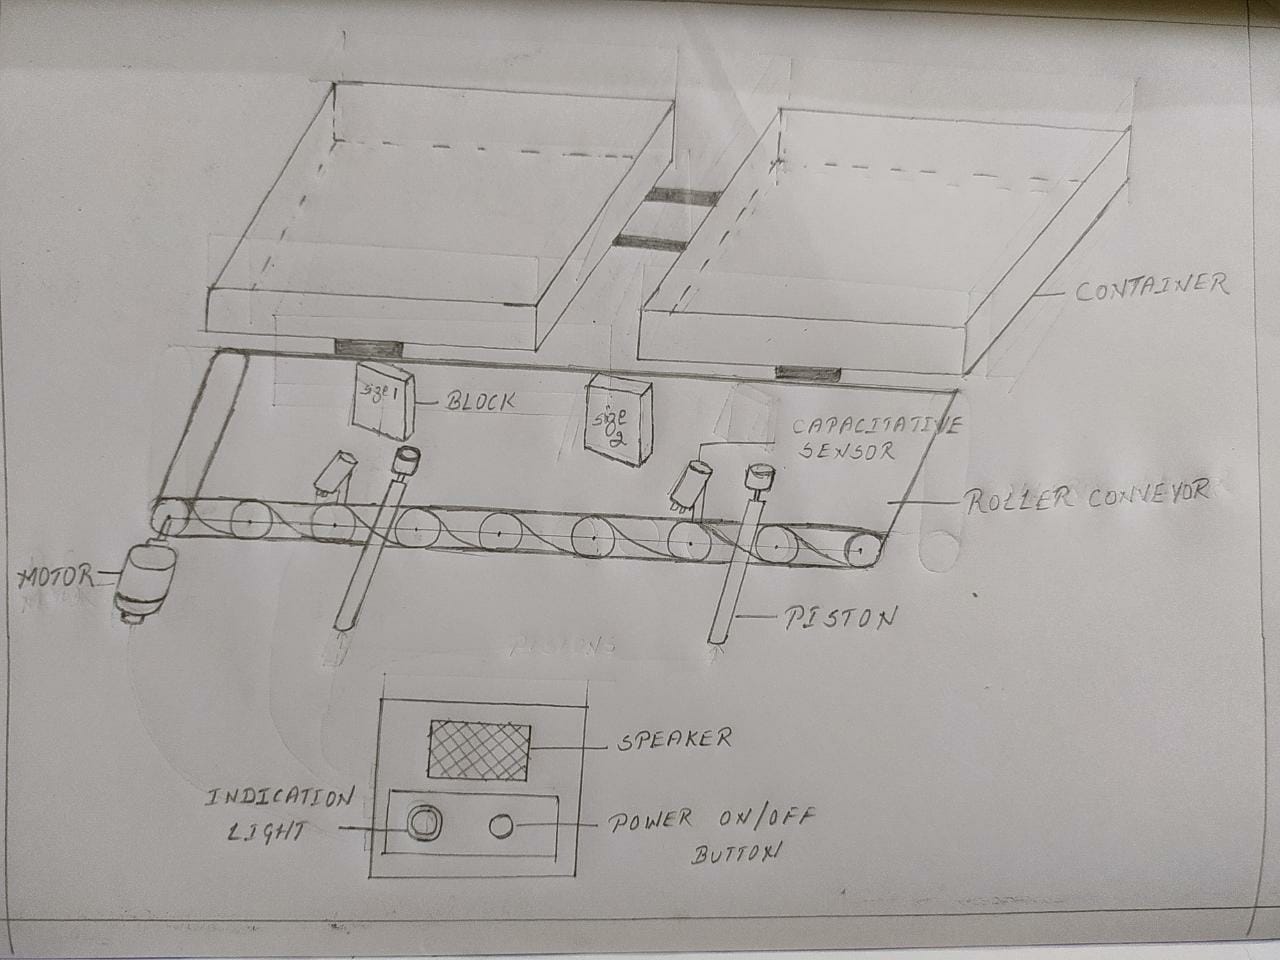 CONTAINER
size 1
BLOCK
size
2
CAPACITATIVE
SENSOR
ROLLER CONVEYOR
MOTOR
PISTON
PISTONS
SPEAKER
INDICATION
LIGHT
POWER ON/OFF
BUTTON